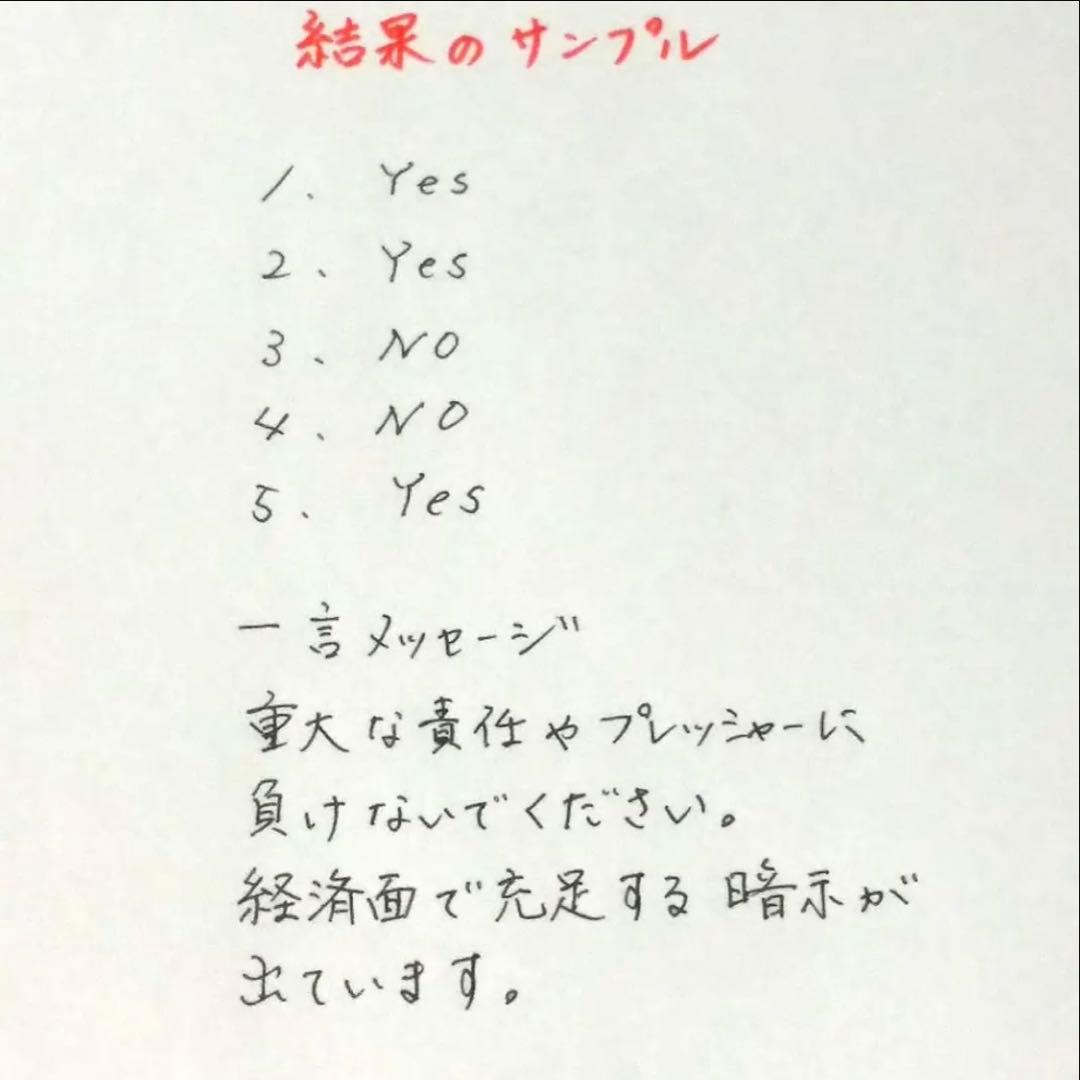 結果のサンプル
1. Yes
2、Yes
3、NO
4、NO
5. Yes
一言メッセージ
重大な責任やプレッシャーに
負けないでください。
経済面で充足する暗示が
出ています。